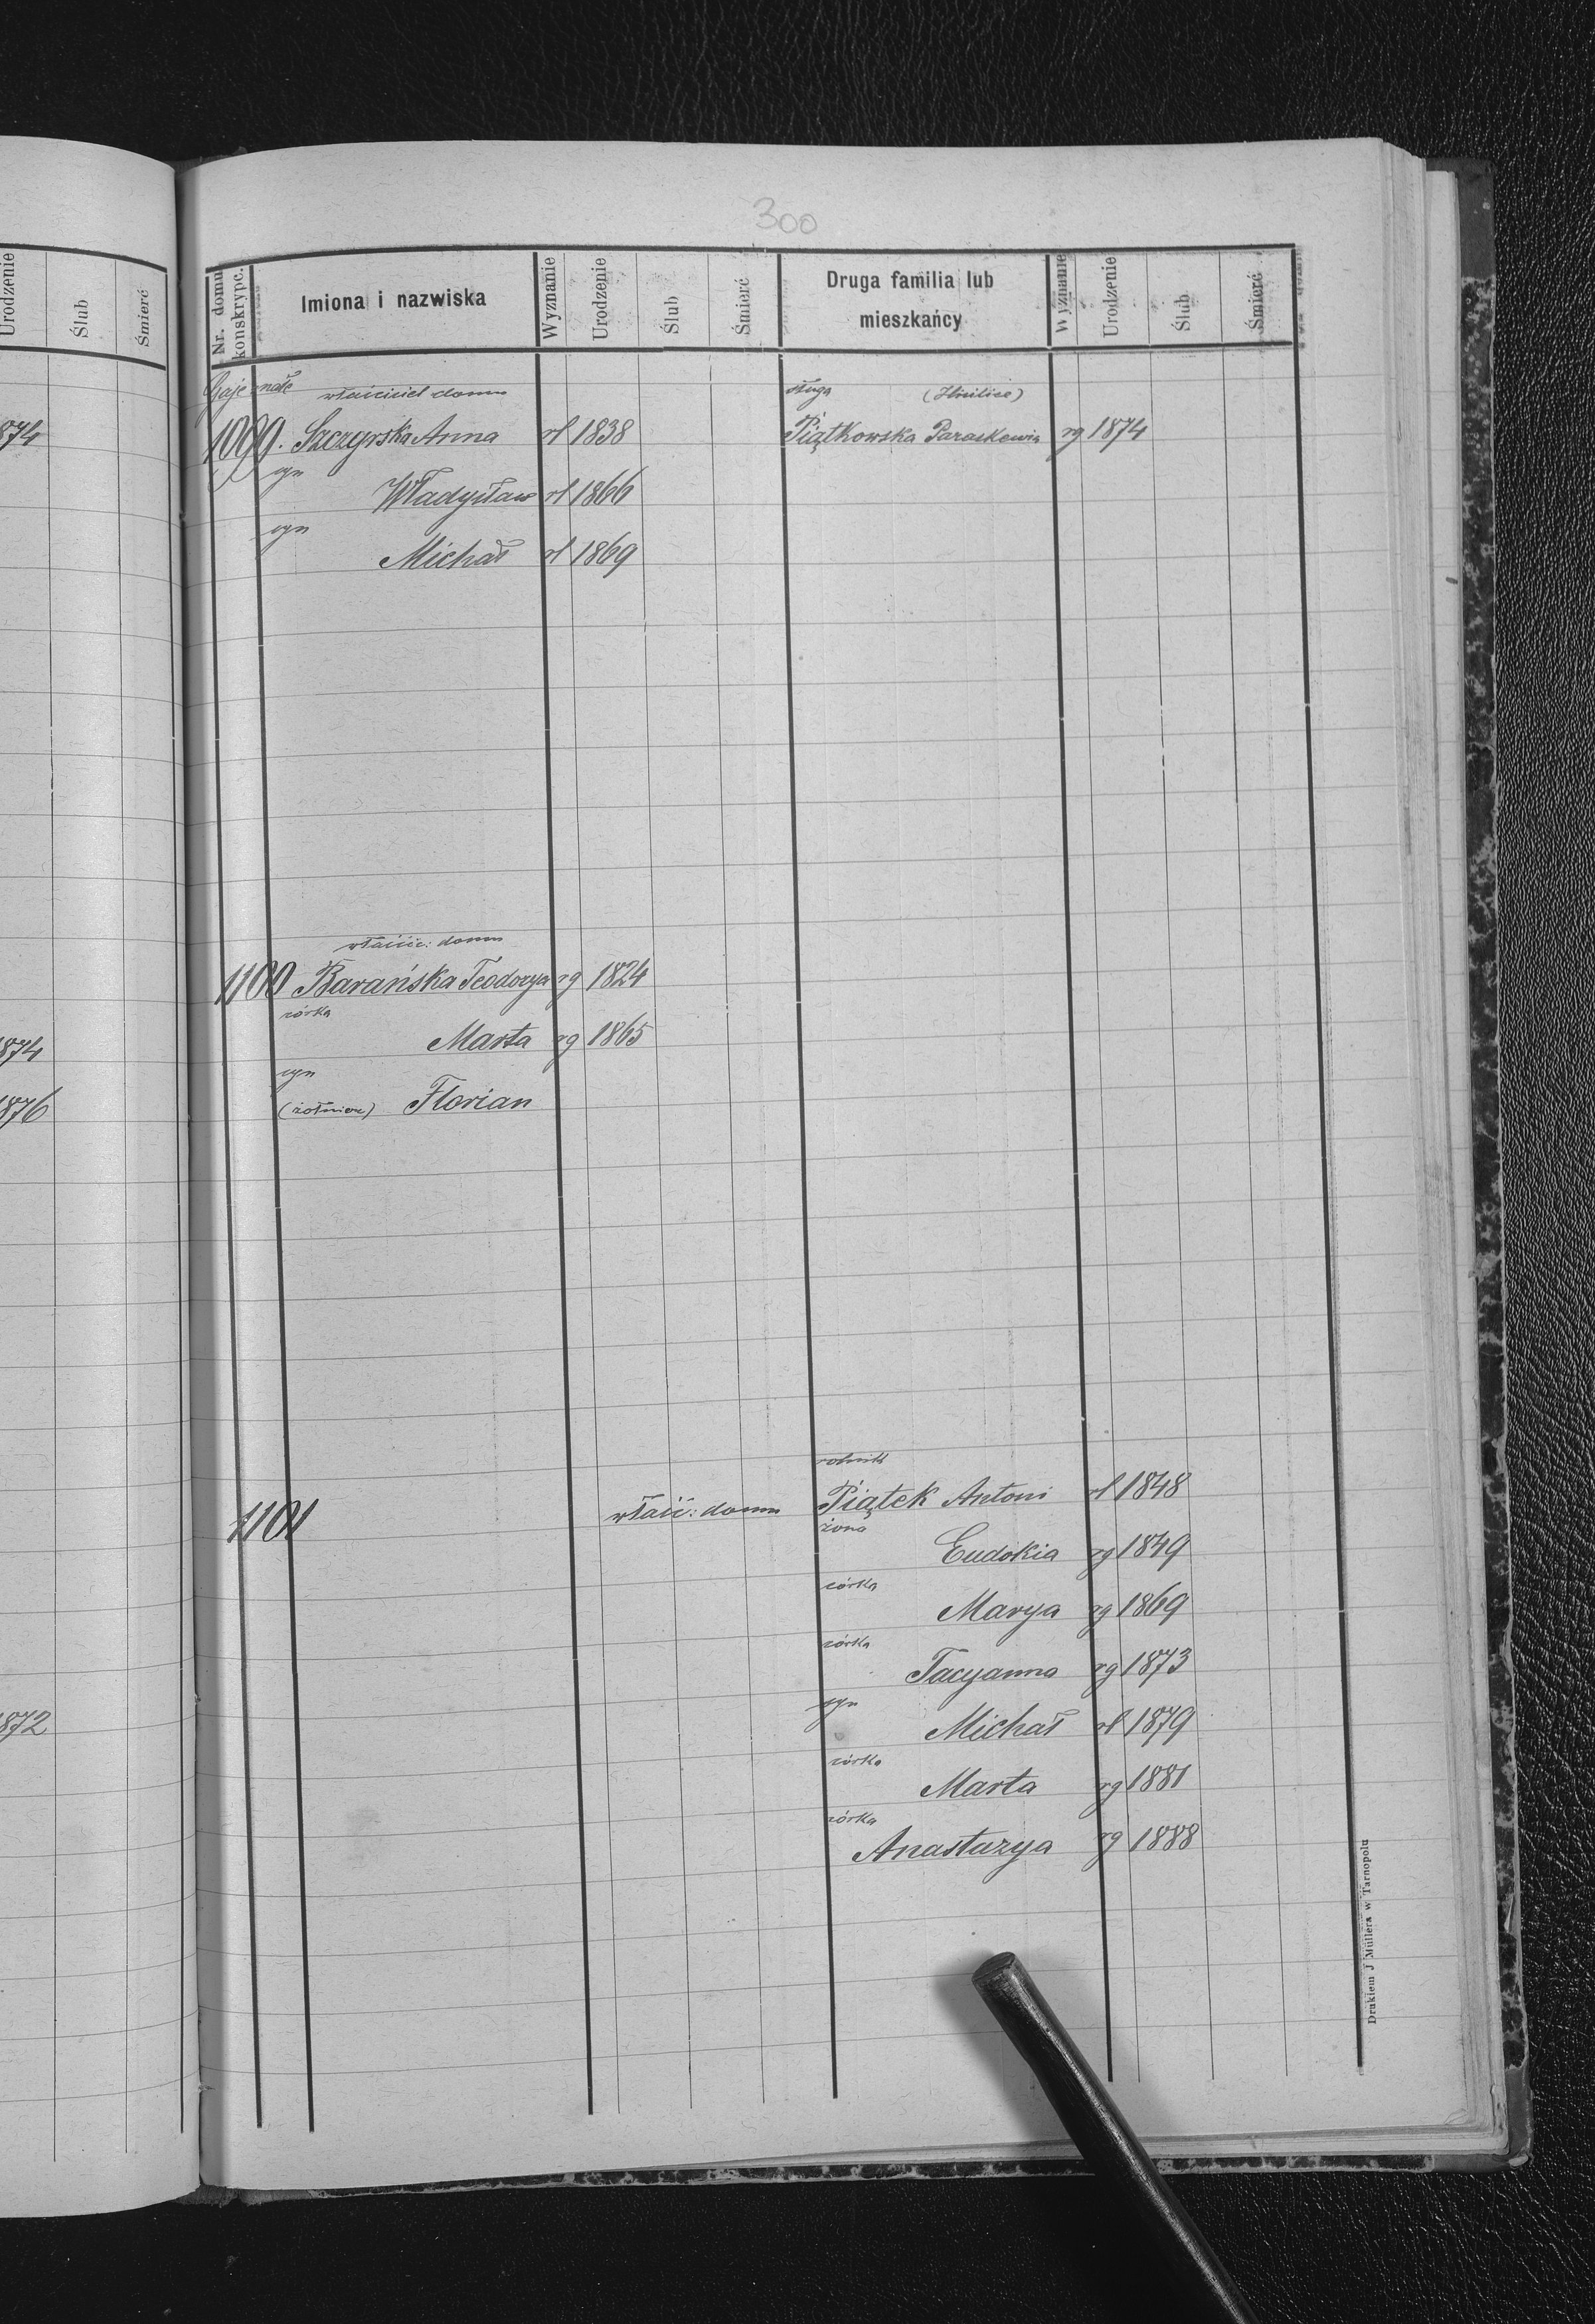 300
Urodzenie Ślub Śmierć
Nr. domu konskrypc. Imiona i nazwiska Wyznanie Urodzenie Ślub Śmierć Druga familia lub mieszkańcy Wyznanie Urodzenie Ślub Śmierć
Gaje małe właściciel domu sługa
874 1099. Szczyrska Anna rł 1838 Piątkowska Paraskewia rg 1874
syn
Władysław rł 1866
syn
Michał rł 1869
właśśc: domu
1100 Barańska Teodozya rg 1824
córka
874 Marta rg 1865
syn
876 (żołnierz) Florian
rolnik
1101 właść: domu Piątek Antoni rł 1848
żona
Eudokia rg 1849
córka
Marya rg 1869
córka
Tacyanna rg 1873
syn
872 Michał rł 1879
córka
Marta rg 1881
córka
Anastazya rg 1888
Drukiem J Müllera w Tarnopolu